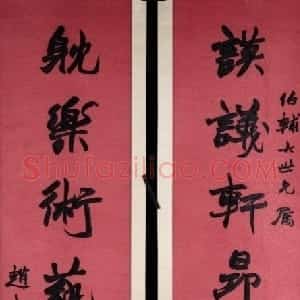 伯輔大世兄屬
謨議軒昂
躭樂術藝
趙
Shufaziliao.com